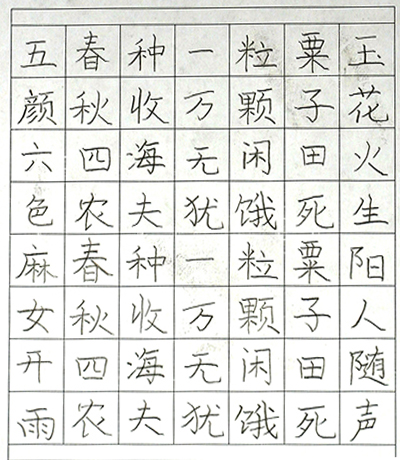 五春种一粒粟玉
颜秋收万颗子花
六四海无闲田火
色农夫犹饿死生
麻春种一粒粟阳
女秋收万颗子人
开四海无闲田随
雨农夫犹饿死声